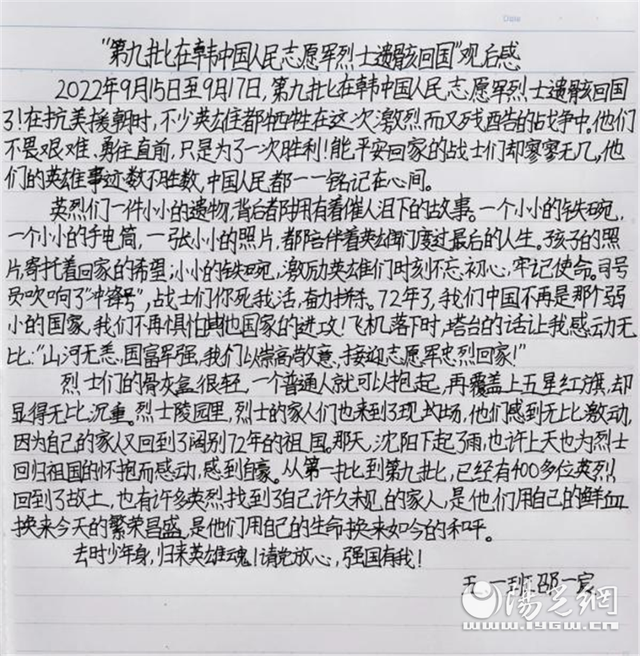 Date
"第九批在韩中国人民志愿军烈士遗骸回国"观后感
2022年9月15日至9月17日,第九批在韩中国人民志愿军烈士遗骸回国
了!在抗美援朝时,不少英雄都牺牲在这次激烈而又残酷的战争中。他们
不畏艰难、勇往直前,只是为了一次胜利!能平安回家的战士们却寥寥无几,他
们的英雄事迹数不胜数,中国人民都一一铭记在心间。
英烈们一件小小的遗物,背后都拥有着催人泪下的故事。一个小小的铁碗,
一个小小的手电筒,一张小小的照片,都陪伴着英雄们度过最后的人生。孩子的照
片,寄托着回家的希望;小小的铁碗,激励英雄们时刻不忘初心,牢记使命。司号
员吹响了"冲锋号",战士们你死我活,奋力拼杀。72年了,我们中国不再是那个弱
小的国家,我们不再惧怕其他国家的进攻!飞机落下时,塔台的话让我感动无
比:"山河无恙,国富军强,我们以崇高敬意,接迎志愿军忠烈回家!"
烈士们的骨灰盒很轻,一个普通人就可以抱起,再覆盖上五星红旗,却
显得无比沉重。烈士陵园里,烈士的家人们也来到了现场,他们感到无比激动,
因为自己的家人又回到了阔别72年的祖国。那天,沈阳下起了雨,也许上天也为烈士
回归祖国的怀抱而感动,感到自豪。从第一批到第九批,已经有400多位英烈
回到了故土,也有许多英烈找到了自己许久未见的家人,是他们用自己的鲜血
换来今天的繁荣昌盛,是他们用自己的生命换来如今的和平。
去时少年身,归来英雄魂!请党放心,强国有我!
五.一班 邵一宸
阳光网
www.iygw.cn